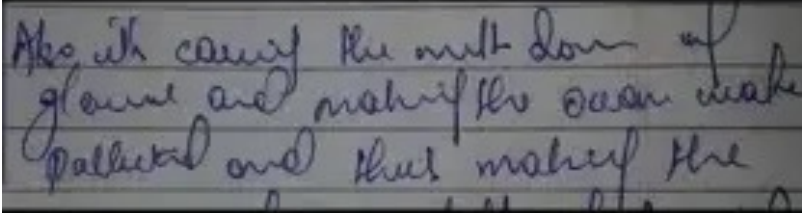 Also it's causing the melt down of
glaciers and making the ocean water
polluted and thus making the